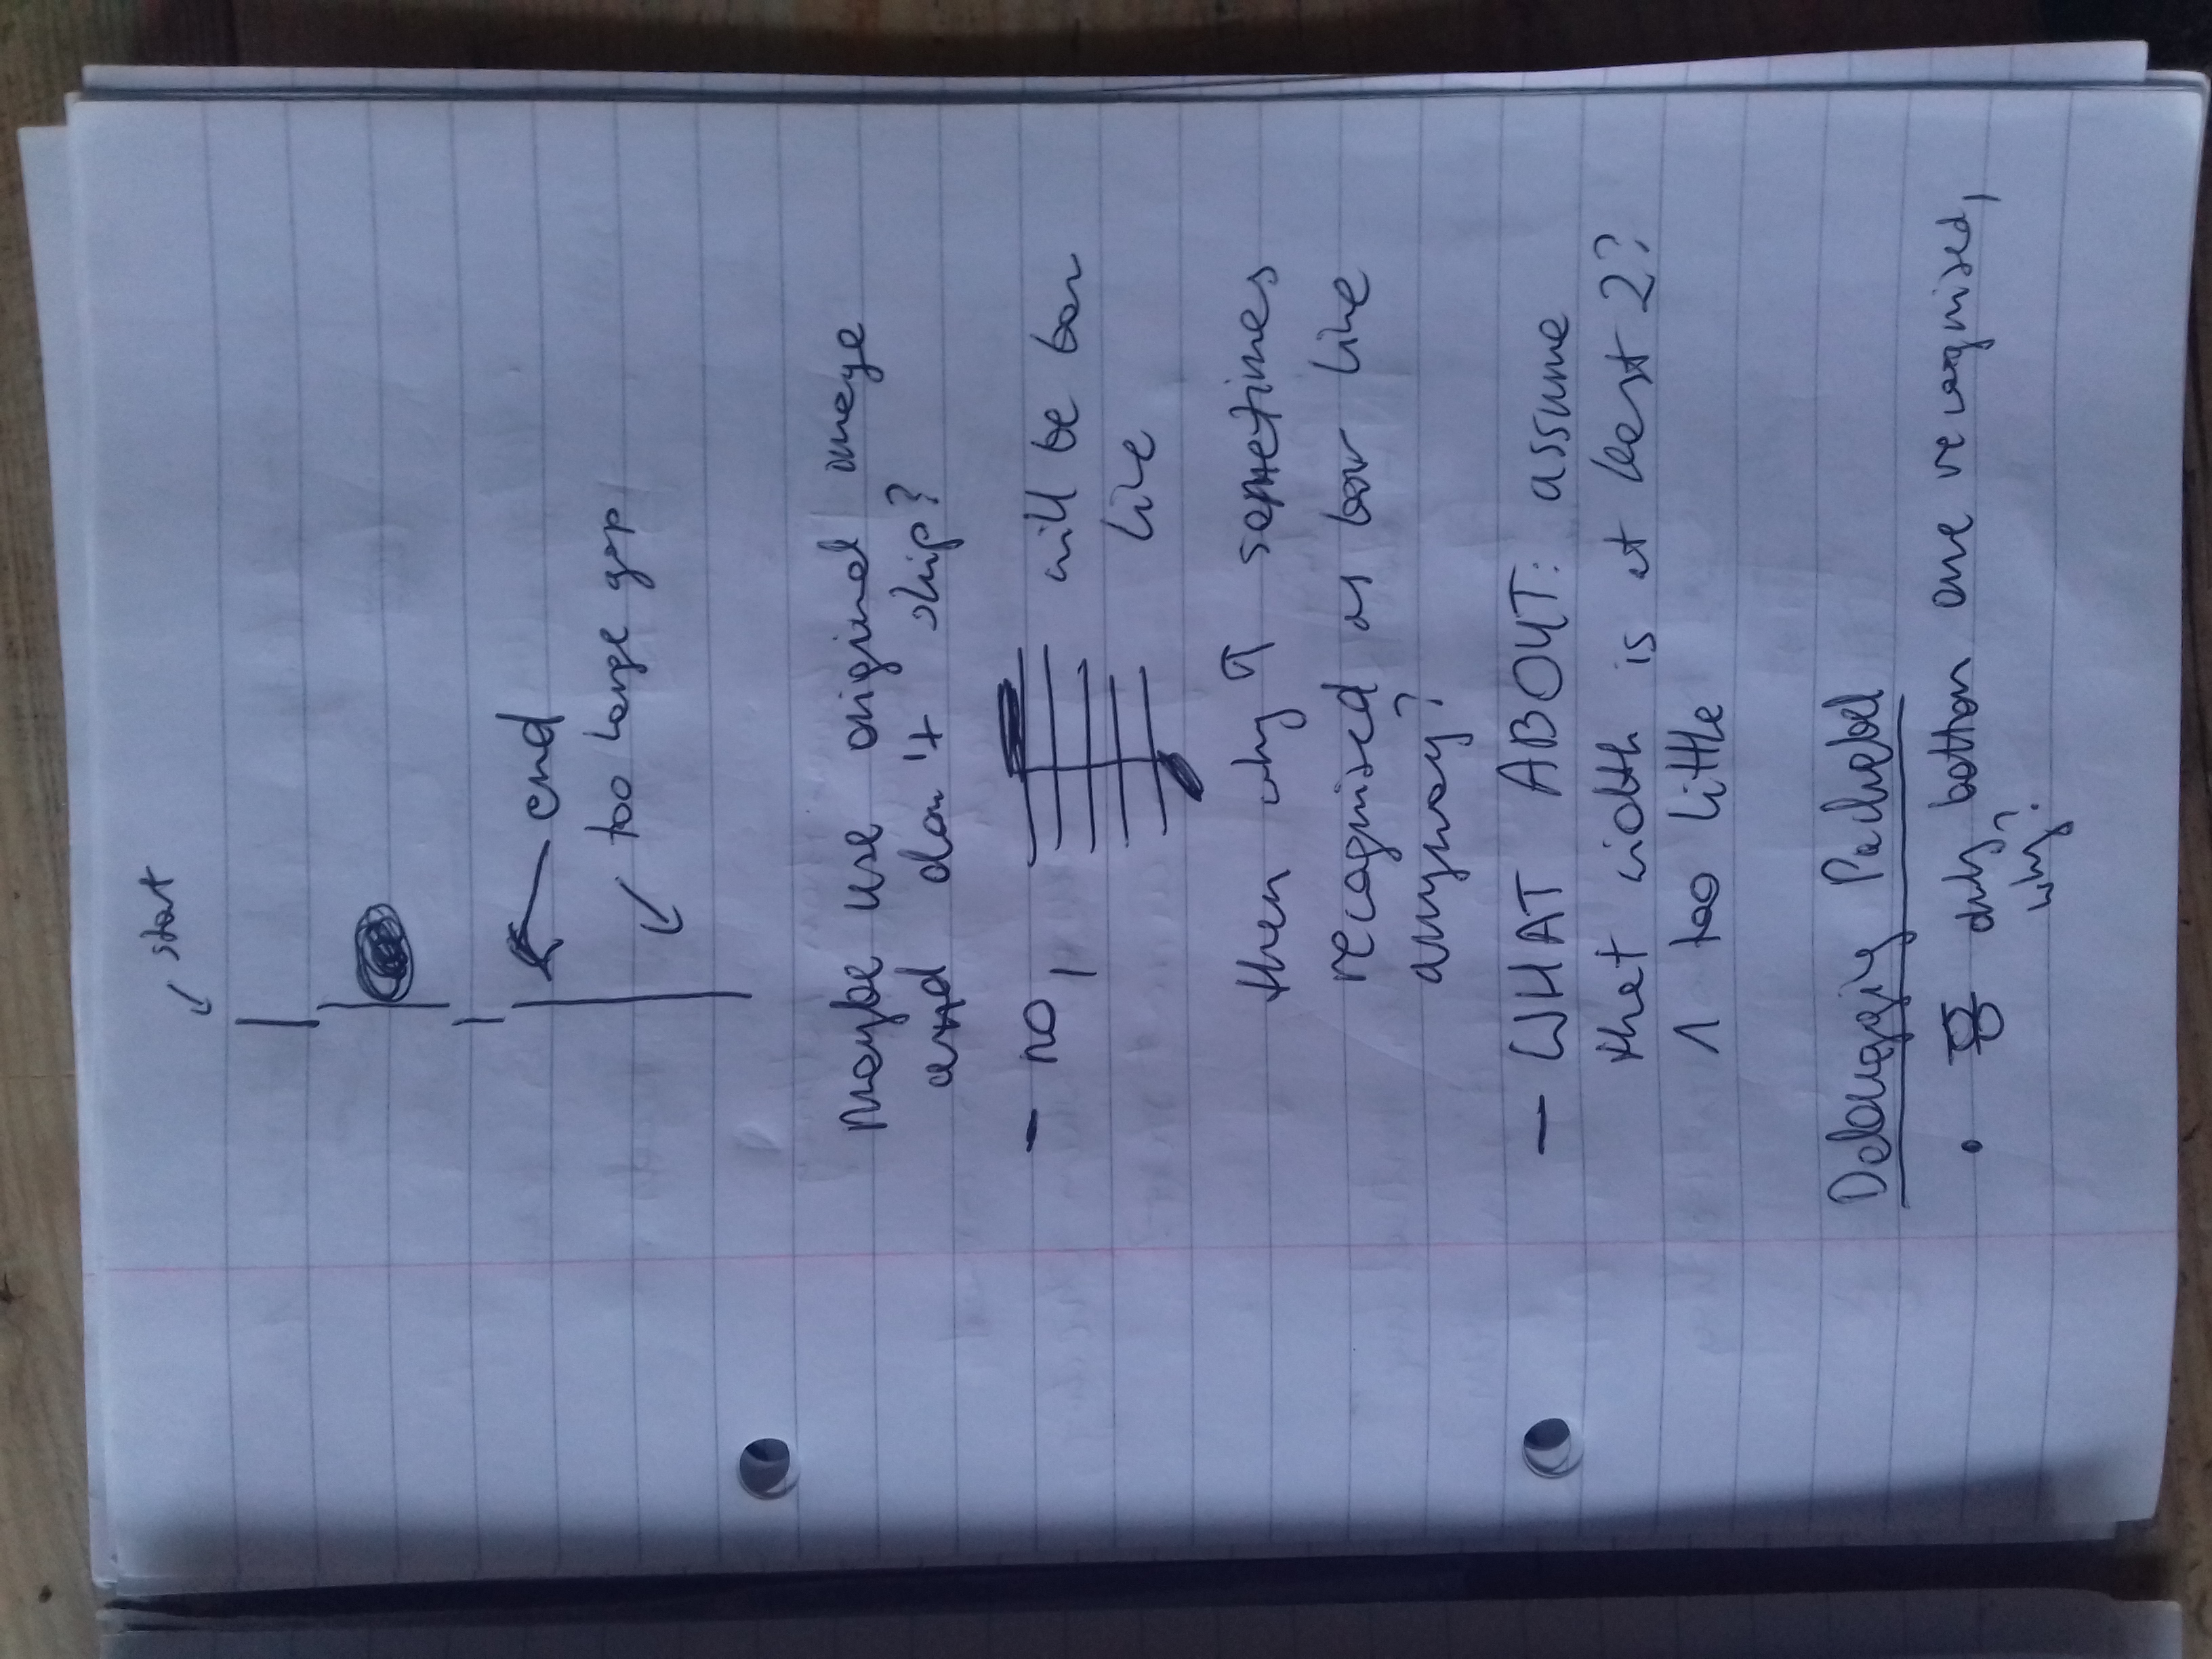 start
end
too large gap
maybe use original image
and don't skip?
- no, will be bar
line
then why ↑ sometimes
recognised as bar line
anyway?
- WHAT ABOUT: assume
that width is at least 2?
1 too little
Debugging Pachelbel
• only bottom one recognised,
why?